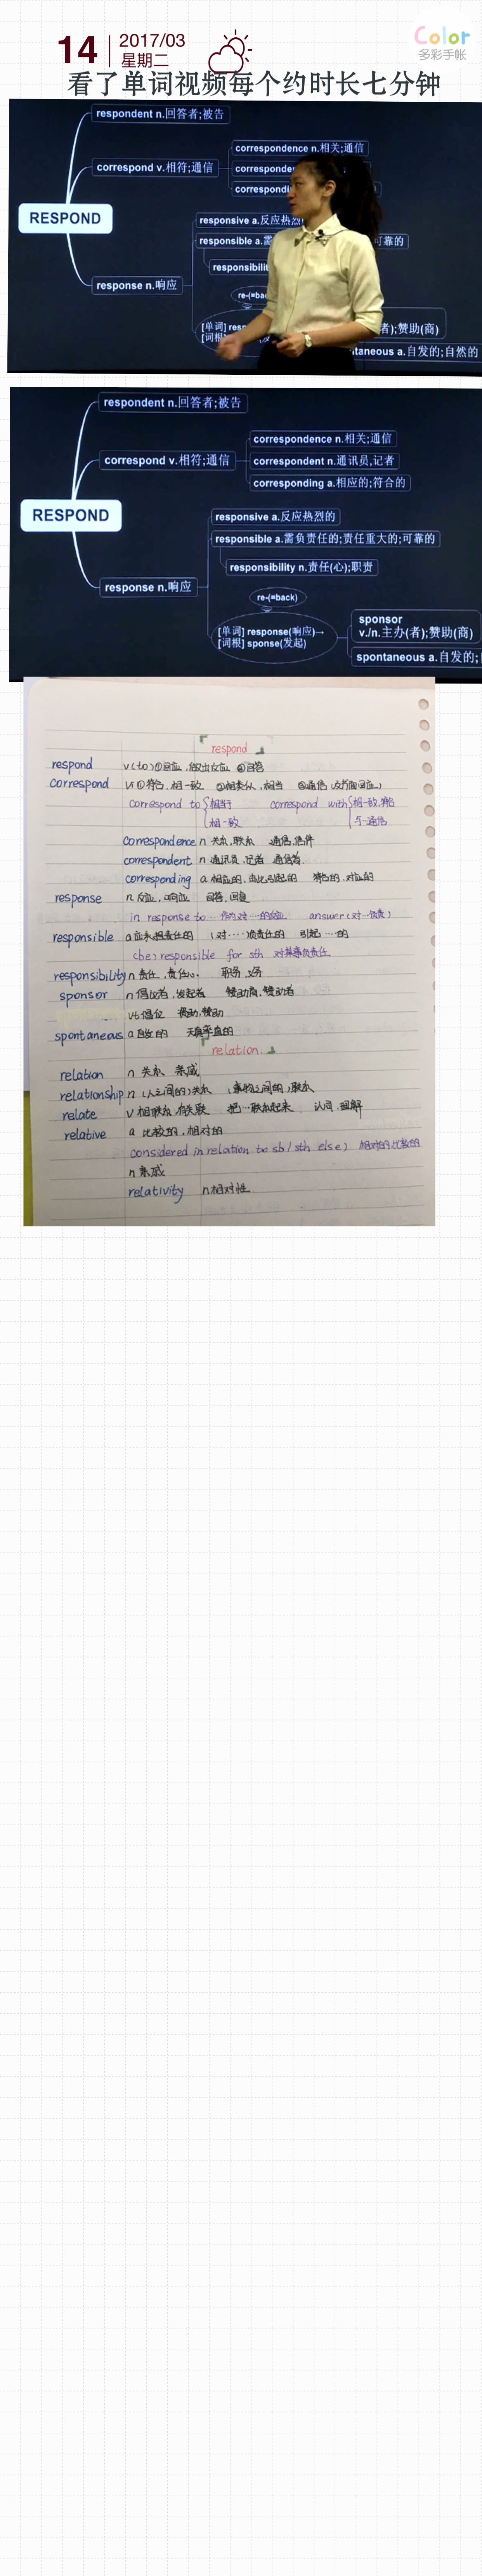 14
2017/03
星期二
Color
多彩手帐
看了单词视频每个约时长七分钟
respondent n.回答者;被告
correspondence n.相关;通信
correspond v.相符;通信
RESPOND
responsive a.反应热烈
可靠的
response n.响应
[单词]
[词根]
者);赞助(商)
taneous a.自发的;自然的
respondent n.回答者;被告
correspondence n.相关;通信
correspond v.相符;通信
correspondent n.通讯员,记者
corresponding a.相应的;符合的
RESPOND
responsive a.反应热烈的
responsible a.需负责任的;责任重大的;可靠的
responsibility n.责任(心);职责
response n.响应
re-(=back)
sponsor
v./n.主办(者);赞助(商)
[单词] response(响应)→
[词根] sponse(发起)
spontaneous a.自发的;
respond
respond v (to) ①回应,做出反应 ②回答
correspond vi ①符合,相一致 ②相类似,相当 ③通信
correspond to 相当于 相一致 correspond with 相一致,符合 与…通信
correspondence n 关系,联系 通信,信件
correspondent n 通讯员,记者 通信者
corresponding a 相应的,由此引起的 符合的,对应的
response n 反应,响应 回答,回复
in response to 作为对…的反应 answer (对…负责)
responsible a 应承担责任的 (对…)负责任的 引起…的
(be) responsible for sth 对某事负责任
responsibility n 责任,责任心 职务,义务
sponsor n 倡议者,发起者 赞助商,赞助者
vt 倡议 资助,赞助
spontaneous a 自发的 天真率直的
relation
relation n 关系 亲戚
relationship n (人之间的)关系 (事物之间的)联系
relate v 相联系,有关联 把…联系起来 认同,理解
relative a 比较的,相对的
considered in relation to sb/sth else) 相对的,比较的
n 亲戚
relativity n 相对性